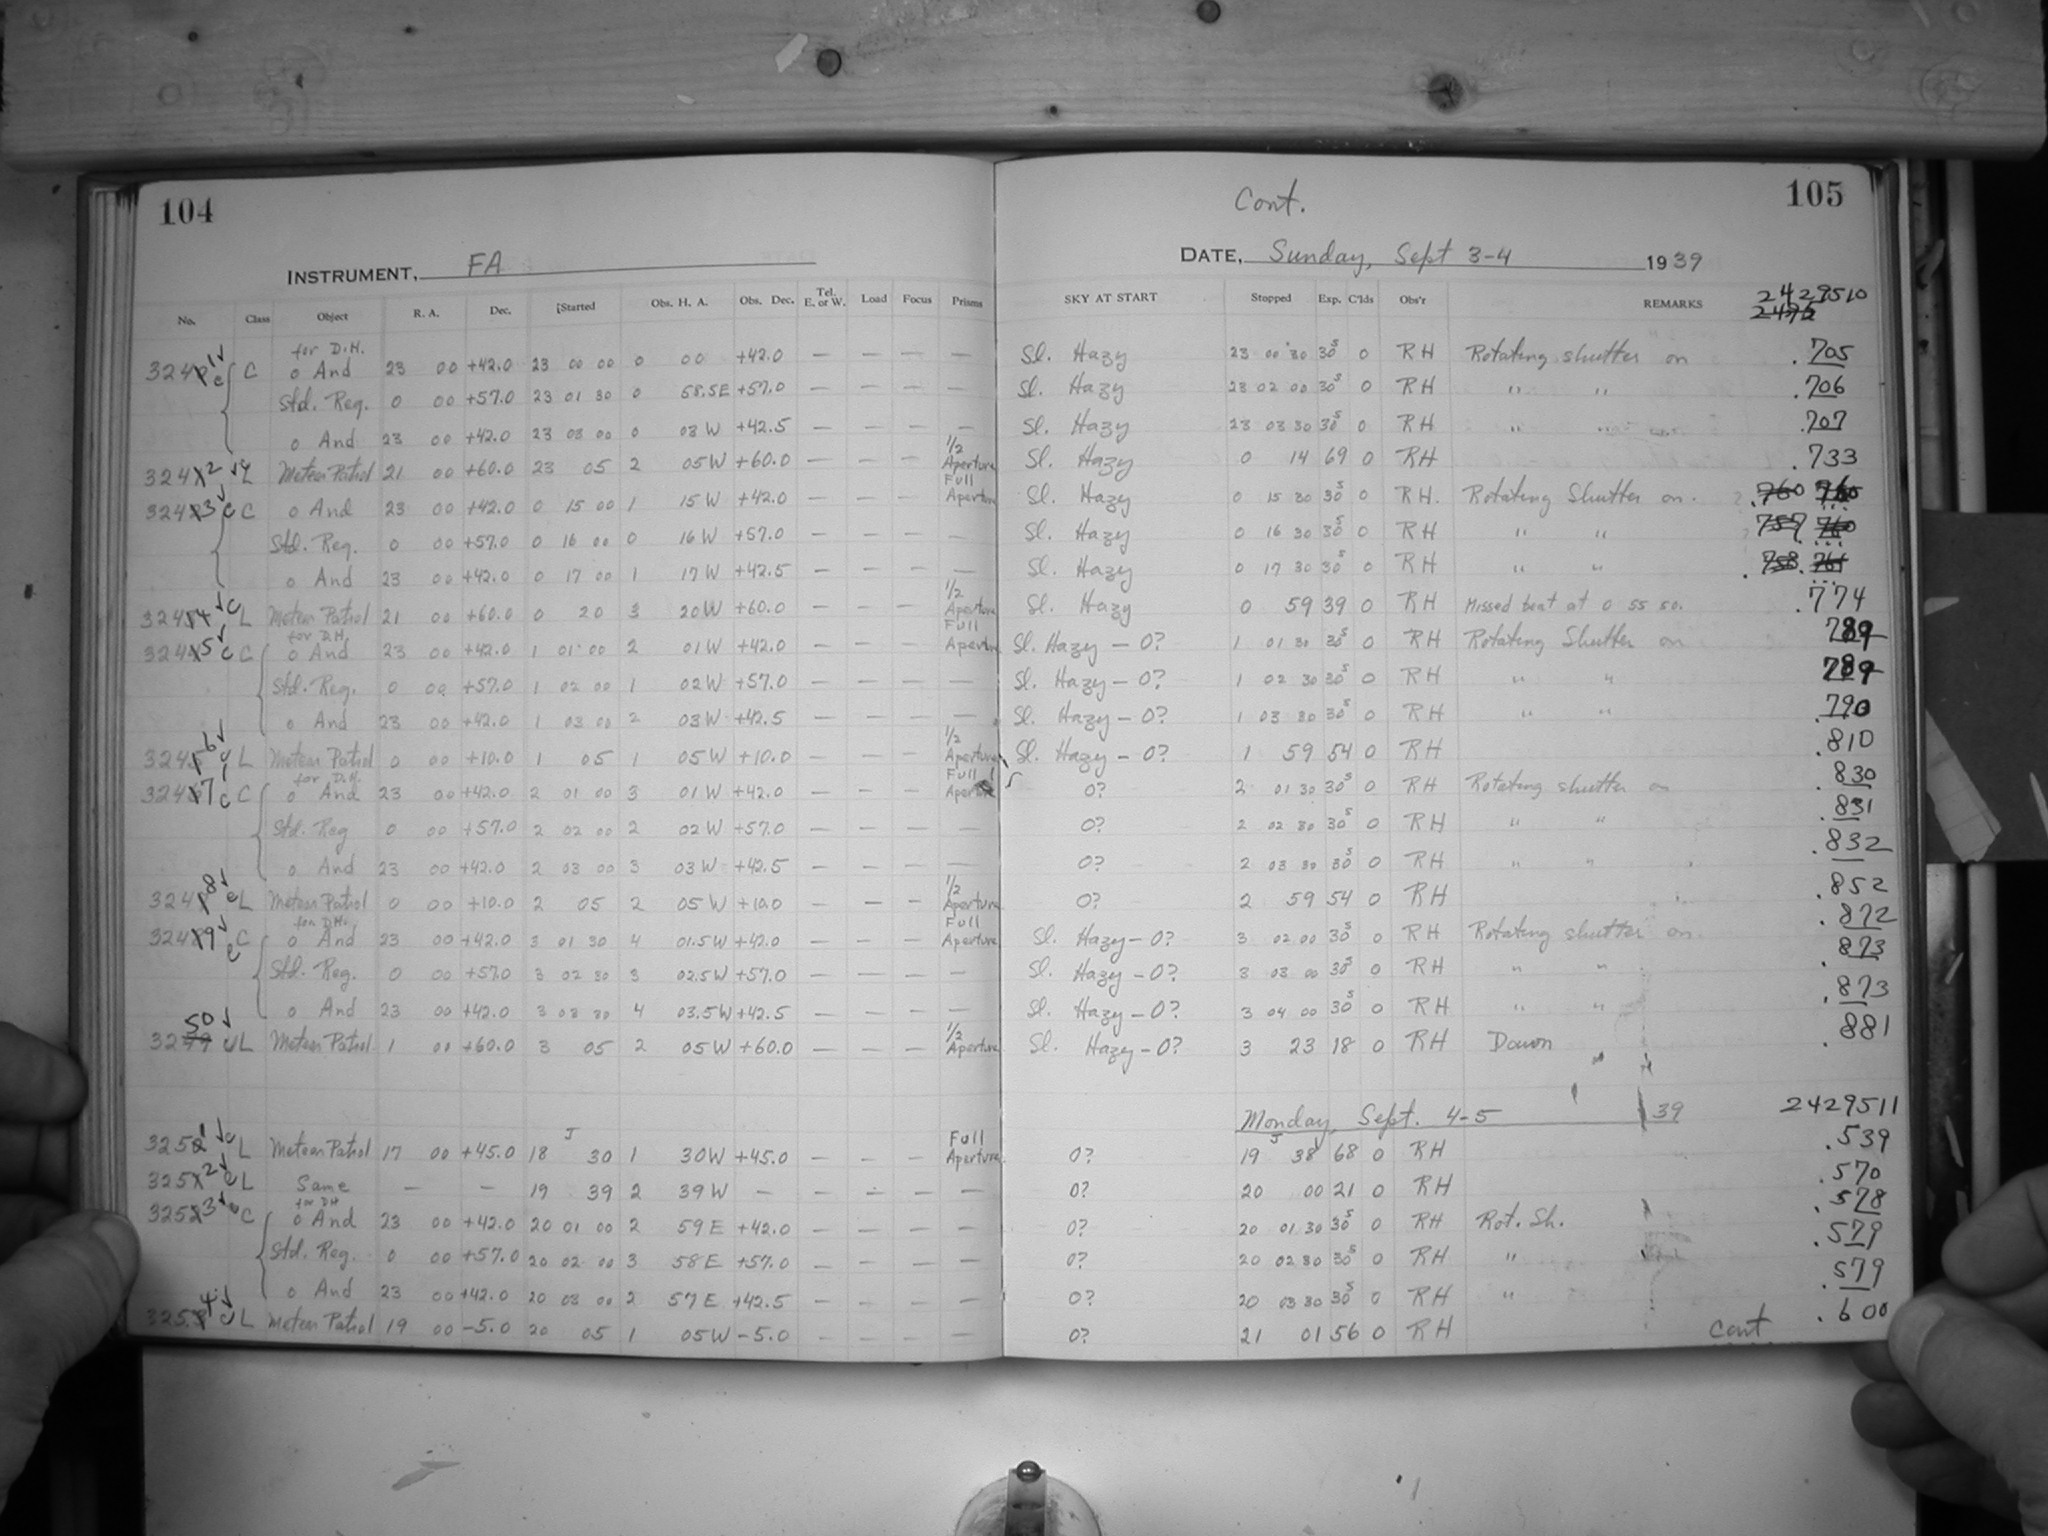 104
Cont.
105
INSTRUMENT, FA
DATE, Sunday, Sept 3-4 1939
2429510
No. Class Object R. A. Dec. Started Obs. H. A. Obs. Dec. Tel. E. or W. Load Focus Prisms SKY AT START Stopped Exp. C'lds Obs'r REMARKS
for D.H.
3241 C o And 23 00 +42.0 23 00 00 0 00 +42.0 — — — — Sl. Hazy 23 00 30 30s 0 RH Rotating shutter on .705
Std. Reg. 0 00 +57.0 23 01 30 0 58.5E +57.0 — — — — Sl. Hazy 23 02 00 30s 0 RH " " .706
o And 23 00 +42.0 23 03 00 0 03 W +42.5 — — — — Sl. Hazy 23 03 30 30s 0 RH " " .707
3242 L Meteor Patrol 21 00 +60.0 23 05 2 05 W +60.0 — — — 1/2 Aperture Sl. Hazy 0 14 69 0 RH .733
3243 C o And 23 00 +42.0 0 15 00 1 15 W +42.0 — — — Full Aperture Sl. Hazy 0 15 30 30s 0 RH. Rotating Shutter on. .760
Std. Reg. 0 00 +57.0 0 16 00 0 16 W +57.0 — — — — Sl. Hazy 0 16 30 30s 0 RH " " 757 760
o And 23 00 +42.0 0 17 00 1 17 W +42.5 — — — — Sl. Hazy 0 17 30 30s 0 RH " " .758 .761
3244 L Meteor Patrol 21 00 +60.0 0 20 3 20W +60.0 — — — 1/2 Aperture Sl. Hazy 0 59 39 0 RH Missed beat at 0 55 50. .774
for D.H.
3245 C o And 23 00 +42.0 1 01 00 2 01 W +42.0 — — — Full Aperture Sl. Hazy — 0? 1 01 30 30s 0 RH Rotating Shutter on 789
Std. Reg. 0 00 +57.0 1 02 00 1 02 W +57.0 — — — — Sl. Hazy — 0? 1 02 30 30s 0 RH " " 789
o And 23 00 +42.0 1 03 00 2 03 W +42.5 — — — — Sl. Hazy — 0? 1 03 30 30s 0 RH " " .790
3246 L Meteor Patrol 0 00 +10.0 1 05 1 05 W +10.0 — — — 1/2 Aperture Sl. Hazy — 0? 1 59 54 0 RH .810
for D.H.
3247 C o And 23 00 +42.0 2 01 00 3 01 W +42.0 — — — Full Aperture 0? 2 01 30 30s 0 RH Rotating shutter on .830
Std. Reg 0 00 +57.0 2 02 00 2 02 W +57.0 — — — — 0? 2 02 30 30s 0 RH " " .831
o And 23 00 +42.0 2 03 00 3 03 W +42.5 — — — — 0? 2 03 30 30s 0 RH " " .832
3248 L Meteor Patrol 0 00 +10.0 2 05 2 05 W +10.0 — — — 1/2 Aperture 0? 2 59 54 0 RH .852
for D.H.
3249 C o And 23 00 +42.0 3 01 30 4 01.5W +42.0 — — — Full Aperture Sl. Hazy — 0? 3 02 00 30s 0 RH Rotating shutter on. .872
Std. Reg. 0 00 +57.0 3 02 30 3 02.5W +57.0 — — — — Sl. Hazy — 0? 3 03 00 30s 0 RH " " .873
o And 23 00 +42.0 3 03 30 4 03.5W +42.5 — — — — Sl. Hazy — 0? 3 04 00 30s 0 RH " " .873
3250 L Meteor Patrol 1 00 +60.0 3 05 2 05 W +60.0 — — — 1/2 Aperture Sl. Hazy — 0? 3 23 18 0 RH Dawn .881
Monday, Sept. 4-5 39 2429511
3251 L Meteor Patrol 17 00 +45.0 18 J 30 1 30W +45.0 — — — Full Aperture 0? 19 J 38 68 0 RH .539
3252 L Same — — 19 39 2 39 W — — — — — 0? 20 00 21 0 RH .570
for DH
3253 C o And 23 00 +42.0 20 01 00 2 59 E +42.0 — — — — 0? 20 01 30 30s 0 RH Rot. Sh. .578
Std. Reg. 0 00 +57.0 20 02 00 3 58 E +57.0 — — — — 0? 20 02 30 30s 0 RH " .579
o And 23 00 +42.0 20 03 00 2 57 E +42.5 — — — — 0? 20 03 30 30s 0 RH " .579
3254 L Meteor Patrol 19 00 -5.0 20 05 1 05 W -5.0 — — — — 0? 21 01 56 0 RH .600
Cont